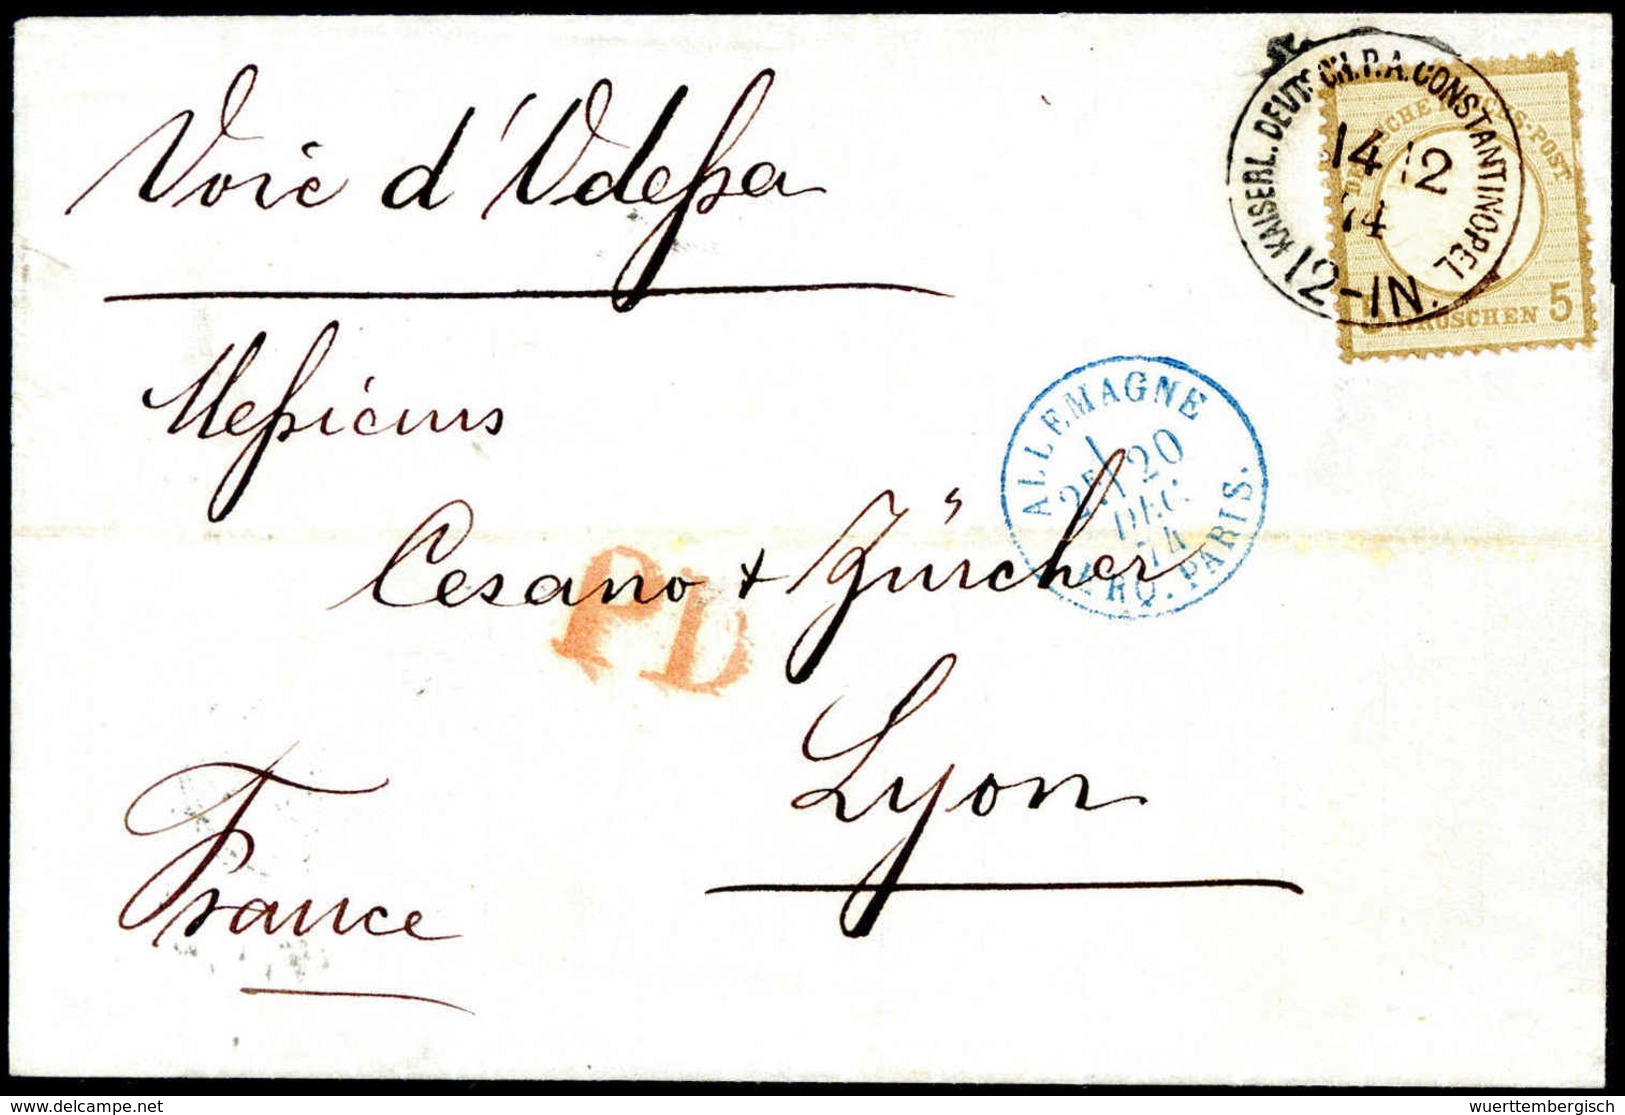 Voie d'Odessa
KAISERL. DEUTSCH. P. A. CONSTANTINOPEL
14 12
74
12-1N.
GROSCHEN 5
Messieurs
ALLEMAGNE
20
DEC.
74
ERQ. PARIS.
Cesano + Zürcher
PD
Lyon
France
delcampe.net
wuerttembergisch